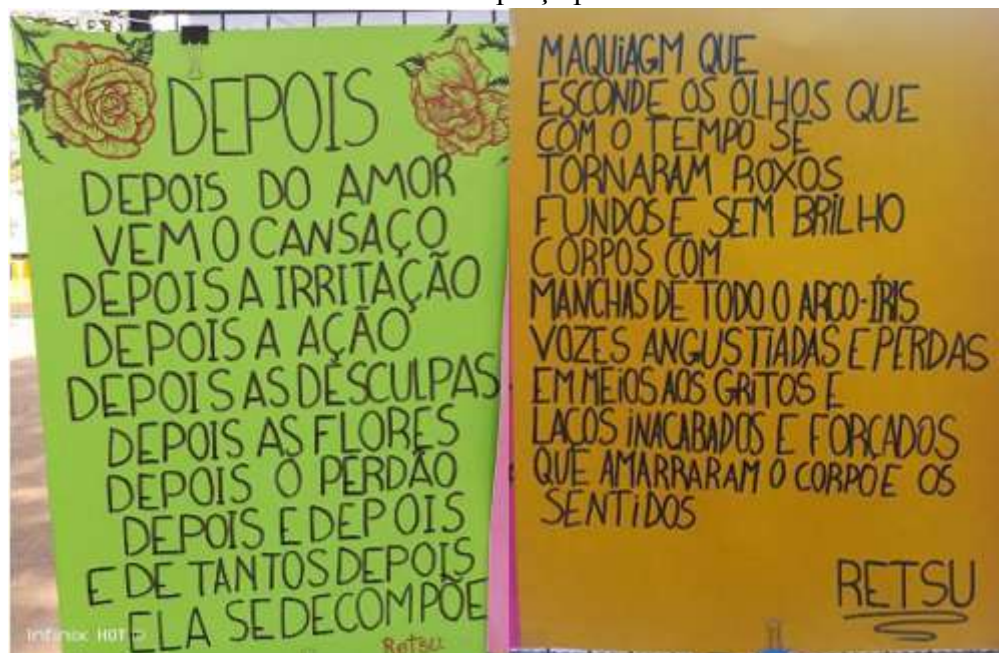 DEPOIS
DEPOIS DO AMOR
VEM O CANSAÇO
DEPOIS A IRRITAÇÃO
DEPOIS A AÇÃO
DEPOIS AS DESCULPAS
DEPOIS AS FLORES
DEPOIS O PERDÃO
DEPOIS E DEPOIS
E DE TANTOS DEPOIS
ELA SE DECOMPÕE
RETSU
Infinix HOT
MAQUIAGM QUE
ESCONDE OS OLHOS QUE
COM O TEMPO SE
TORNARAM ROXOS
FUNDOS E SEM BRILHO
CORPOS COM
MANCHAS DE TODO O ARCO-ÍRIS
VOZES ANGUSTIADAS E PERDAS
EM MEIOS AOS GRITOS E
LAÇOS INACABADOS E FORÇADOS
QUE AMARRARAM O CORPO E OS
SENTIDOS
RETSU